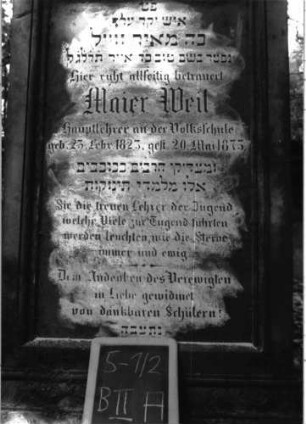 פ״ט
איש יקר
כה מאיר ווייל
נפטר בשם טוב
Hier ruht allseitig betrauert
Maier Weil
Hauptlehrer an der Volksschule
geb. 23. Febr 1823, gest. 20. Mai 1875
ומצדיקי הרבים ככוכבים
אלו מלמדי תינוקות
Sie die treuen Lehrer der Jugend
welche Viele zur Tugend führten
werden leuchten, wie die Sterne
immer und ewig.
Dem Andenken des Verewigten
in Liebe gewidmet
von dankbaren Schülern!
נ ת צ ב ה
5-1/2
B II A